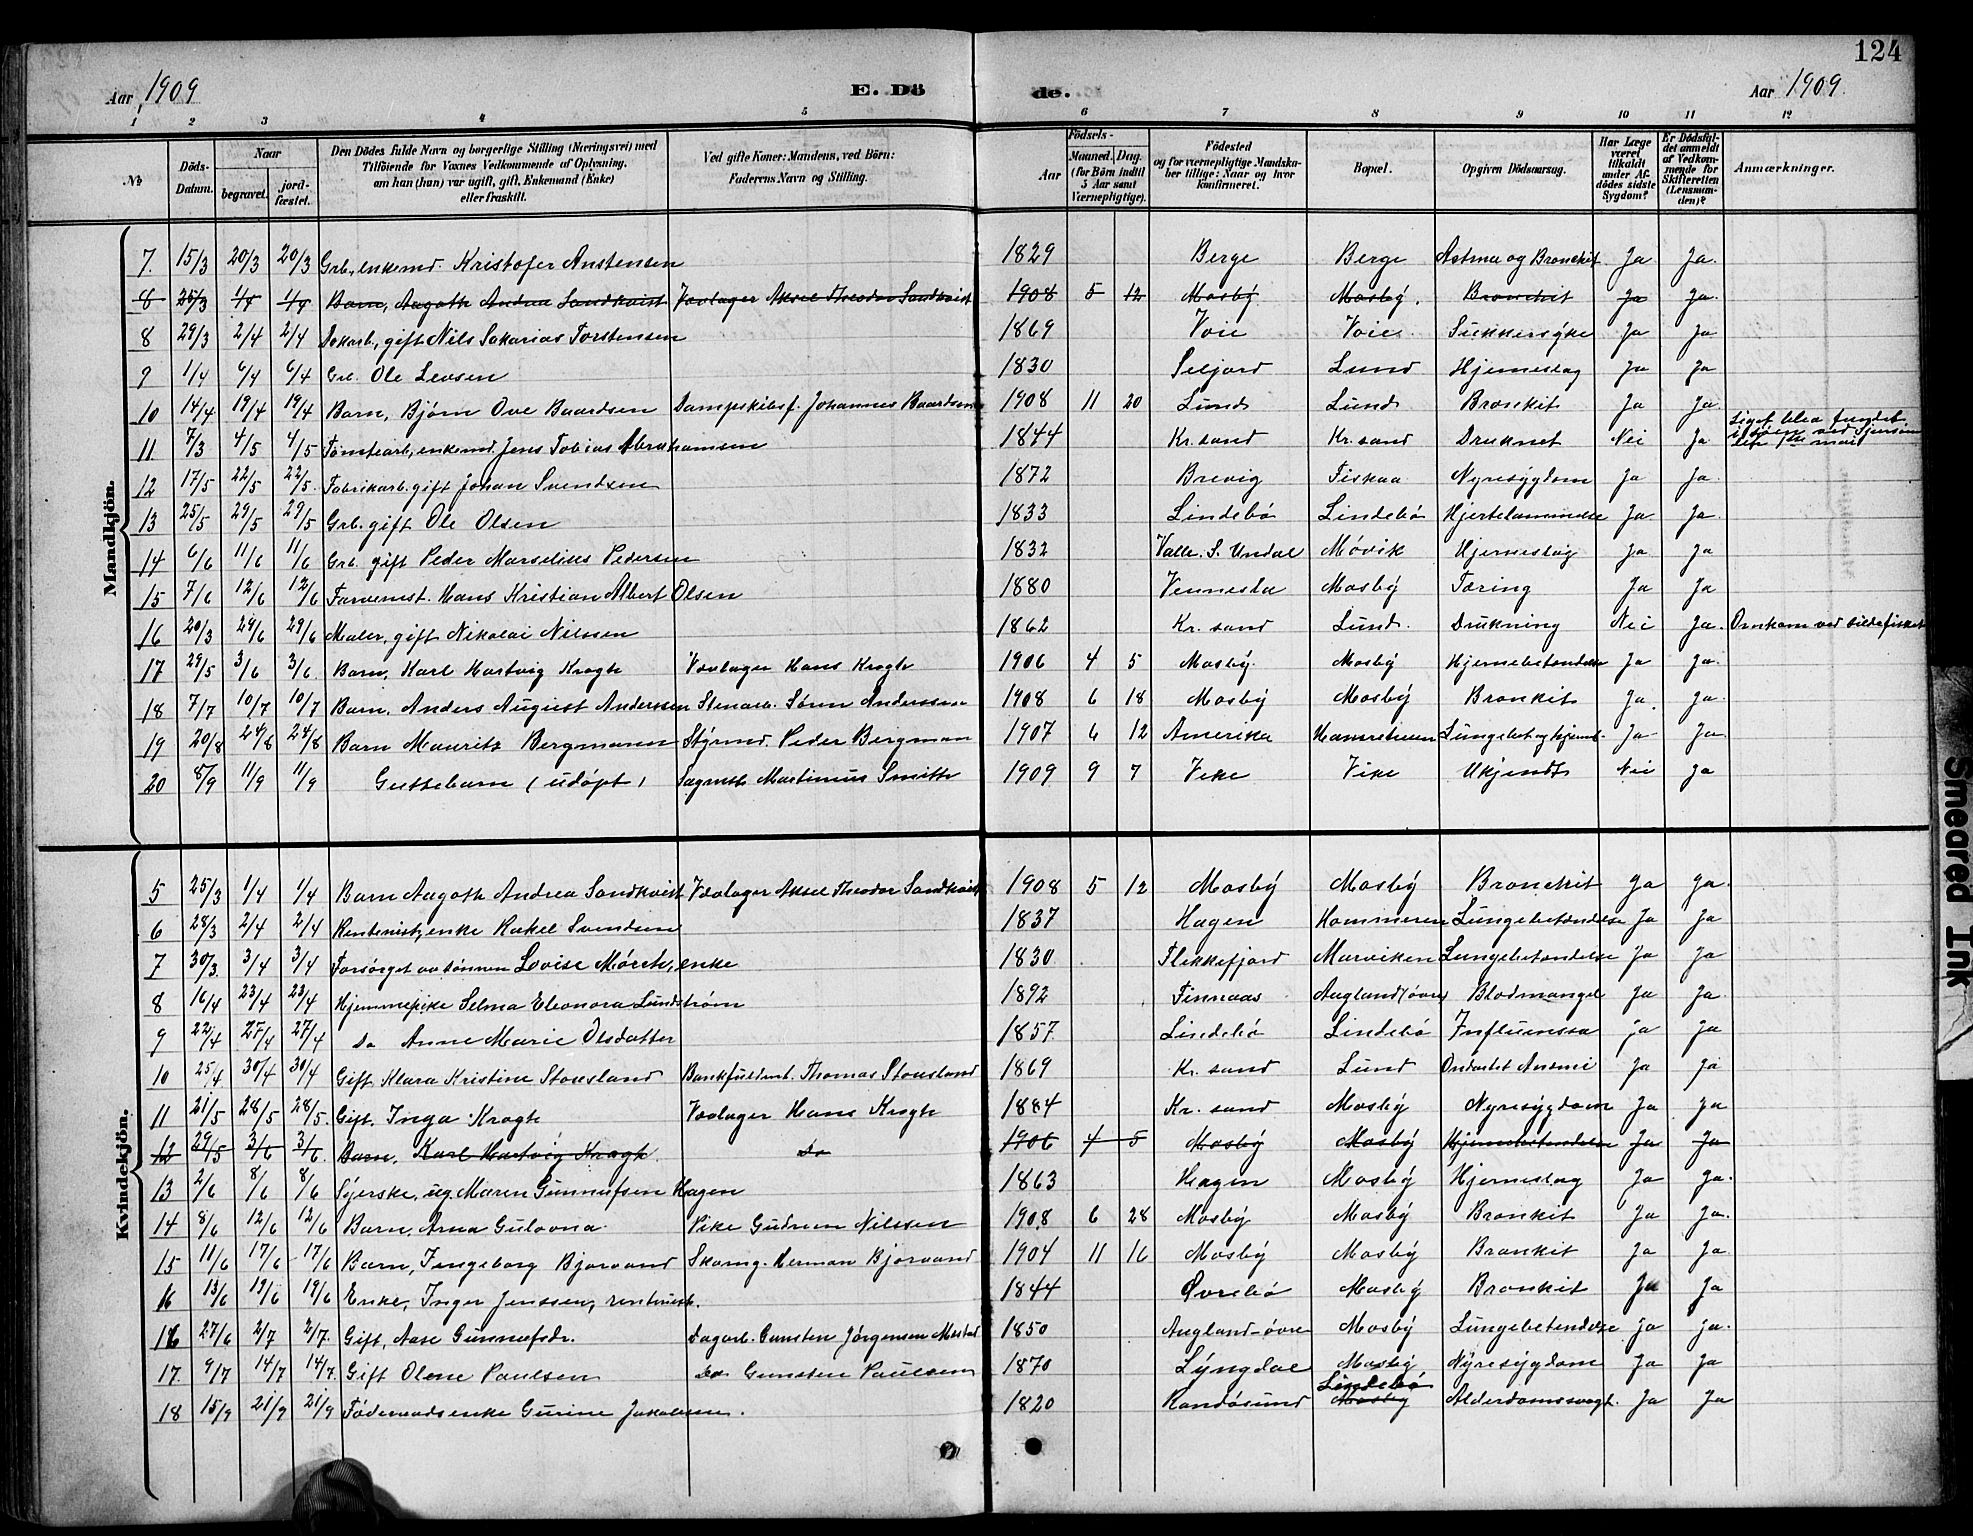 124
Aar 1909
E. Dö de.
Aar 1909.
1 2 3 4 5 6 7 8 9 10 11 12
№ Döds-Datum. Naar begravet. jordfæstet. Den Dödes fulde Navn og borgerlige Stilling (Næringsvei) med Tilföiende for Voxnes Vedkommende af Oplysning, om han (hun) var ugift, gift, Enkemand (Enke) eller fraskilt. Ved gifte Koner: Mandens, ved Börn: Faderens Navn og Stilling. Födsels- Aar Maaned. Dag. (for Börn indtil 5 Aar samt Værnepligtige). Födested og for værnepligtige Mandskaber tillige: Naar og hvor konfirmeret. Bopæl. Opgiven Dödsaarsag. Har Læge været tilkaldt under Afdödes sidste Sygdom? Er Dödsfaldet anmeldt af Vedkommende for Skifteretten (Lensmanden)? Anmærkninger.
Mandkjön.
7. 15/3 20/3 20/3 Grb., enkemd. Kristofer Anstensen 1829 Berge Berge Astma og Bronchit Ja Ja.
8 25/3 1/4 1/4 Barn, Aagoth Andrea Sandkvist Vævlager Aksel Theodor Sandkvist 1908 5 12 Mosby Mosby. Bronchit Ja Ja.
8 29/3 2/4 2/4 gift Nils Sakarias Torstensen 1869 Voie Voie. Sukkersyke Ja Ja
9 1/4 6/4 6/4 Grb. Ole Levsen 1830 Seljord Lund Hjerneslag Ja Ja
10 14/4 19/4 19/4 Barn, Bjørn Ove Baardsen Dampskibsf. Johannes Baardsen 1908 11 20 Lund Lund Bronkit Ja Ja
11 7/3 4/5 4/5 Tomtearb., enkemd. Jens Tobias Abrahamsen 1844 Kr. sand Kr. sand Druknet Nei Ja Liget blev fundet
12 17/5 22/5 22/5. Fabrikarb. gift Johan Svendsen 1872 Brevig Fiskaa Nyresygdom Ja Ja.
13 25/5 29/5 29/5 Grb. gift Ole Olsen 1833 Lindebø Lindebø Hjertelammelse Ja Ja.
14 6/6 11/6 11/6 Grb. gift Peder Marselius Pedersen 1832 Valle. S. Undal Møvik Hjerneslag Ja Ja
15 7/6 12/6 12/6 Farvemst. Hans Kristian Albert Olsen 1880 Vennesla Mosby Tæring Ja Ja
16 20/3 29/6 29/6 Maler, gift Nikolai Nilssen 1862 Kr. sand Lund. Drukning Nei Ja. Omkom ved sildefisket
17 29/5 3/6 3/6. Barn, Karl Hartvig Krogh Vævlager Hans Krogh 1906 4 5 Mosby. Mosby Hjernebetændelse Ja Ja.
18 7/7 10/7 10/7 Barn, Anders August Andersen Stenarb. Sören Andersen 1908 6 18 Mosby Mosby Bronkit Ja. Ja.
19 20/8 24/8 24/8 Barn Mauritz Bergmann Styrmd. Peder Bergman 1907 6 12 Amerika Ja Ja.
20 8/9 11/9 11/9 Guttebarn (udöpt) Martinius Smith 1909 9 7 Veke Vike Ukjendt Nei Ja
Kvindekjön.
5 25/3 1/4 1/4 Barn Aagoth Andrea Sandkvist Vævlager Aksel Theodor Sandkvist 1908 5 12 Mosby Mosby Bronchit Ja Ja.
6 28/3 2/4 2/4 Rentenist, enke Rakel Svendsen 1837 Hagen Hommeren Lungebetændelse Ja Ja
7 30/3 3/4 3/4 Forsørget av sønnen Lovise Mørch, enke 1830 Flekkefjord Marviken Lungebetændelse Ja Ja
8 16/4 23/4 23/4 Hjemmepike Selma Eleonora Lundstrøm 1892 Finnaas Augland (övre Blodmangel Ja Ja.
9 22/4 27/4 27/4 Do Anne Marie Olsdatter 1857 Lindebø Lindebø Influensa Ja Ja
10 25/4 30/4 30/4 Gift Klara Kristine Stousland Bankfuldm. Thomas Stousland 1869 Kr. sand Lund Ondartet Anæmi Ja Ja
11 21/5 28/5 28/5. Gift. Inga Krogh Vævlager Hans Krogh 1884 Kr. sand Mosby Nyresygdom Ja Ja
12 29/5 3/6 3/6. Barn, Karl Hartvig Krogh. Do 1906 4 5 Mosby Mosby Hjernebetændelse Ja Ja
13 2/6 8/6 8/6 Syerske, ug. Maren Gunnufsen Hagen 1863 Hagen Mosby Hjerneslag Ja Ja.
14 8/6 12/6 12/6 Barn, Arna Gulovna Pike Gudrun Nilssen 1908 6 28 Mosby Mosby Bronkit Ja Ja.
15 11/6 17/6 17/6 Barn, Ingeborg Bjorvand Skomg. Herman Bjorvand 1904 11 16 Mosby Mosby Bronkit Ja Ja
16 13/6 19/6 19/6 Enke, Inger Jenssen, rentenist. 1844 Øvrebø Mosby Bronkit Ja Ja
16 27/6 2/7 2/7. Gift, Aase Gunnufsdr. Dagarb. Gunsten Jørgensen 1850 Augland-övre Mosby Lungebetændelse Ja Ja.
17 9/7 14/7 14/7 Gift Olene Paulsen Do. Gunsten Paulsen 1870 Lyngdal Mosby Nyresygdom Ja Ja
18 15/9 21/9 21/9 Føderaadsenke Gurine Jakobsen. 1820 Randösund Lindebø Mosby Alderdomssvagh. Ja Ja
Smeared Ink